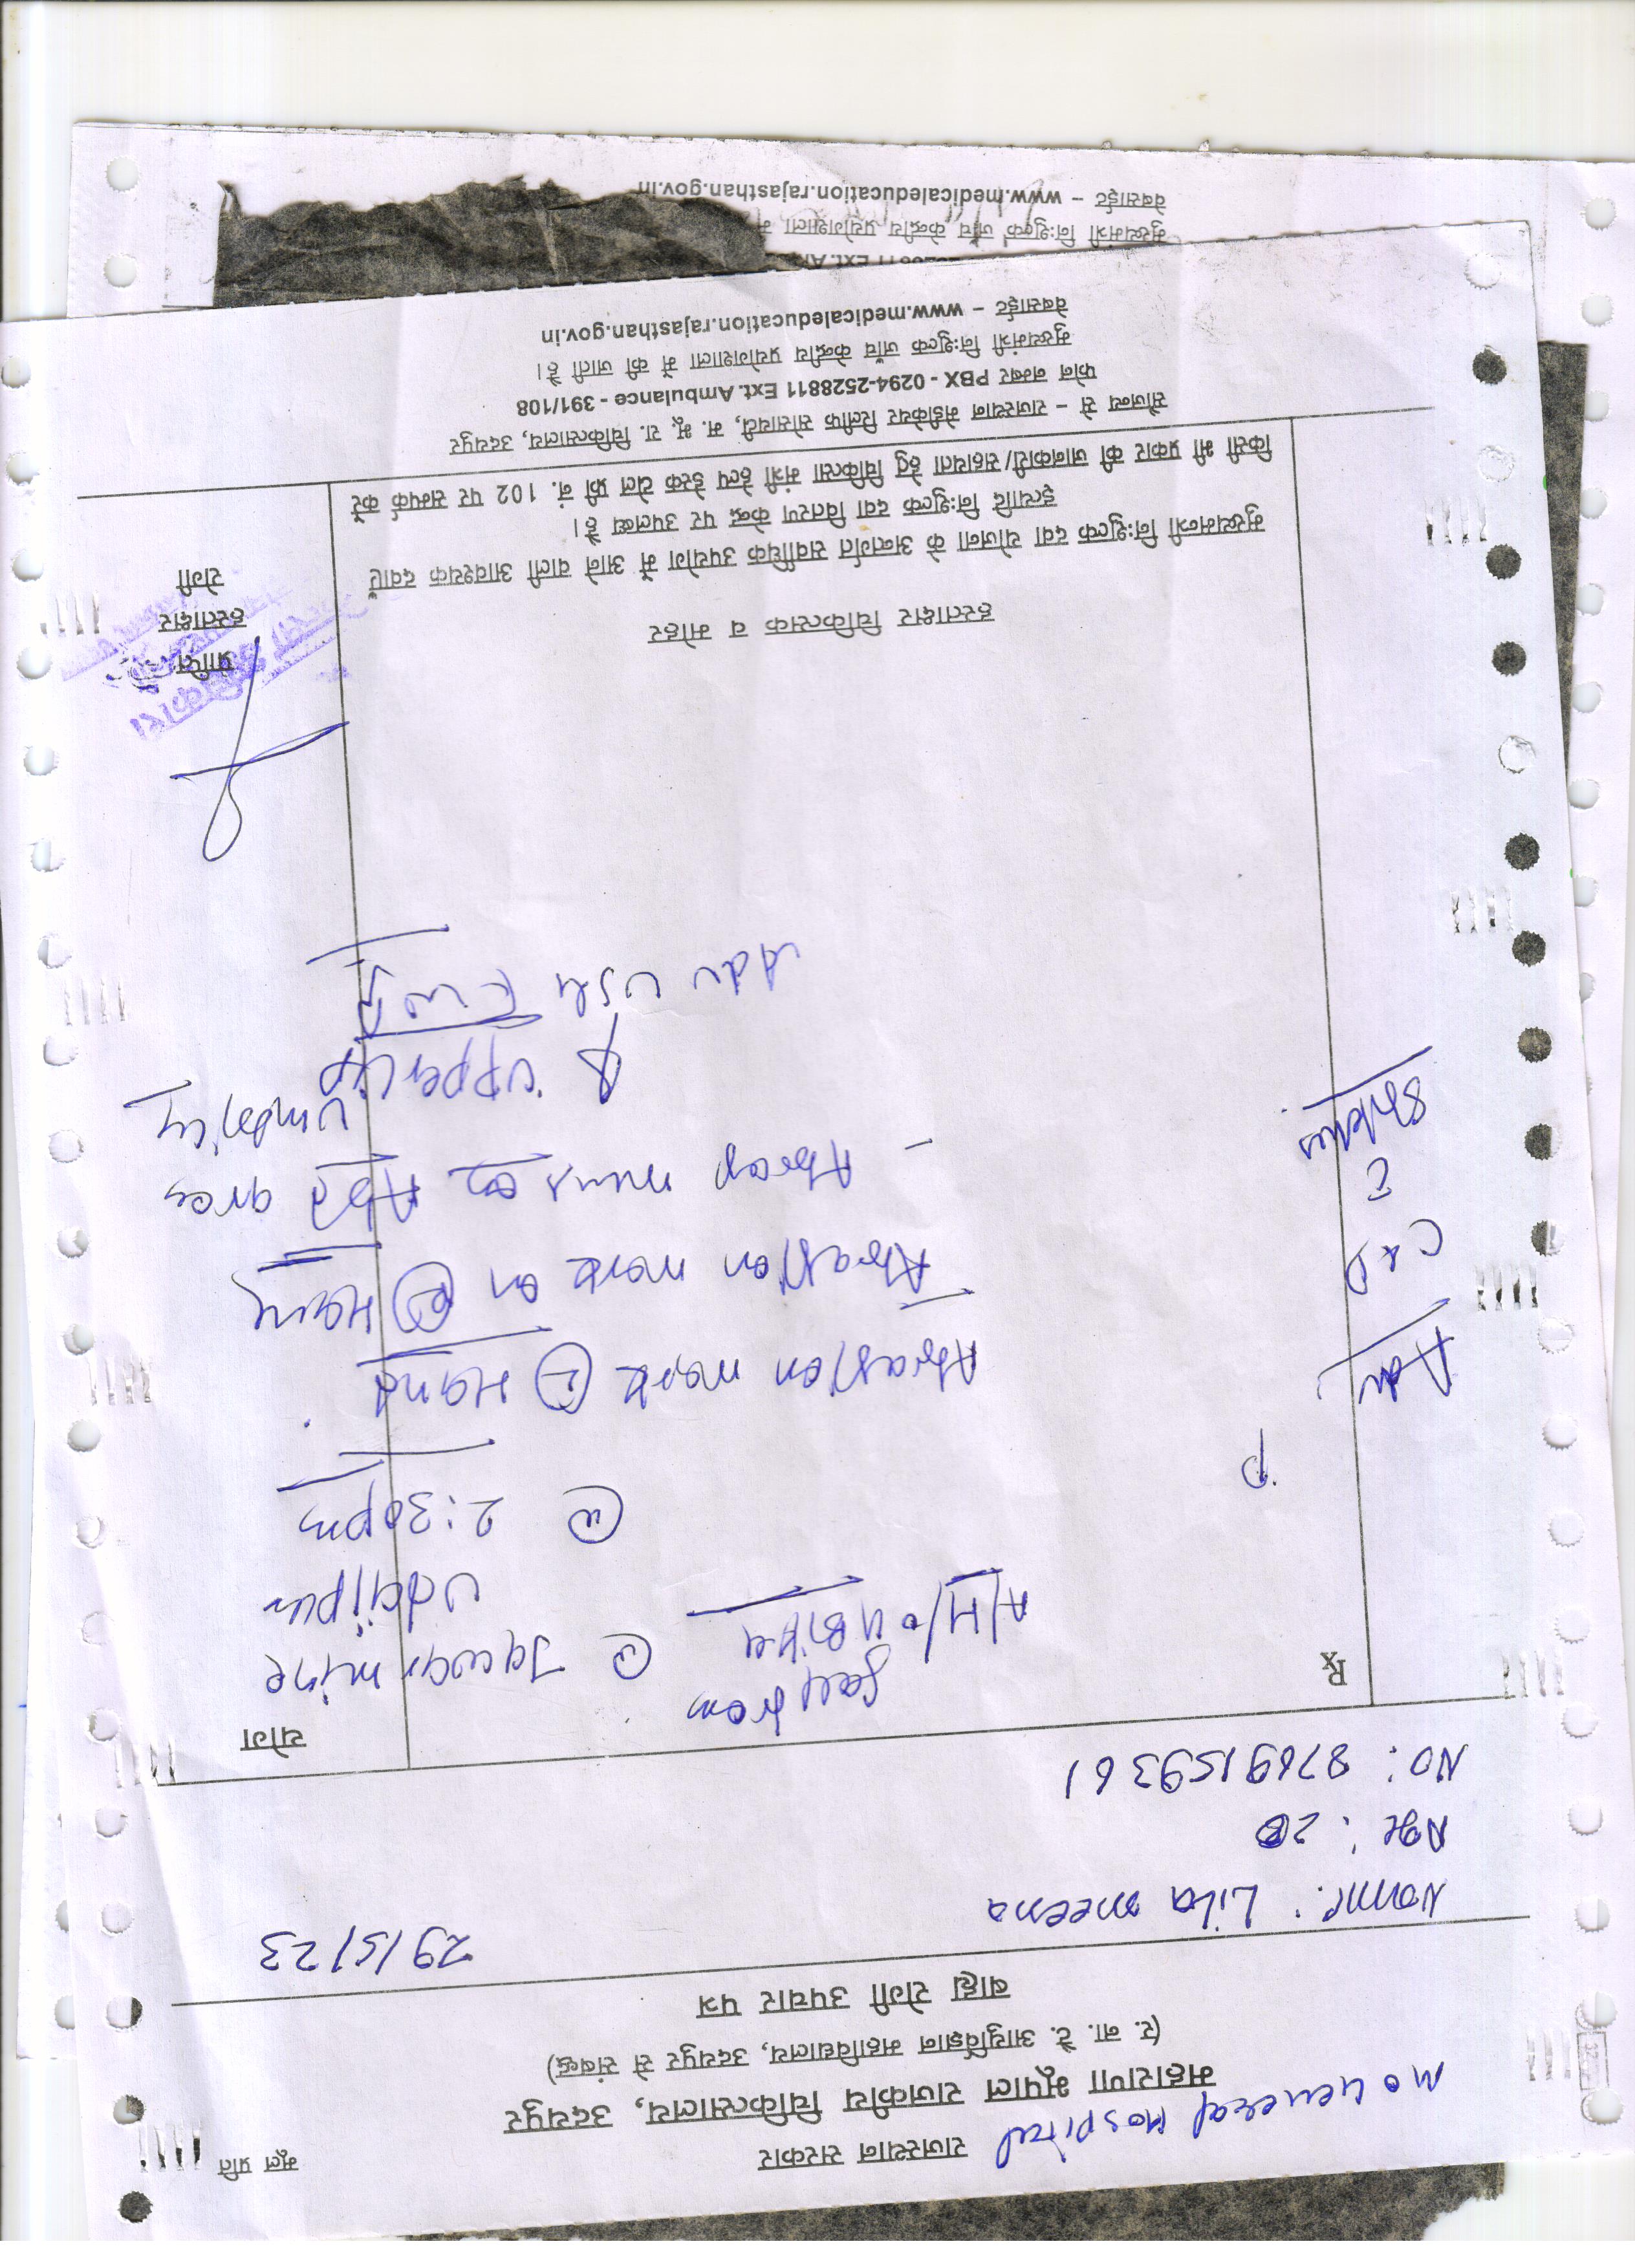 मूल प्रति
राजस्थान सरकार
General Hospital
महाराणा भूपाल राजकीय चिकित्सालय, उदयपुर
(र. ना. टै. आयुर्विज्ञान महाविद्यालय, उदयपुर से संबद्ध)
बाह्य रोगी उपचार पत्र
29/5/23
Name: Lila meena
Age: 20
No: 8769159361
Rx
योग
fall from
A/H/o Bike @ Jawar mine
Udaipur
@ 2:30pm
P
Adv
Abrasion mark (L) Hand
C & D
Abrasion mark on (R) Hand
- Abrasn mars on Abd area
umbilicu
upper lip
Adv
हस्ताक्षर चिकित्सक व मोहर
प्राप्ति
हस्ताक्षर
रोगी
मुख्यमन्त्री निःशुल्क दवा योजना के अन्तर्गत सर्वाधिक उपयोग में आने वाली आवश्यक दवाएं
इत्यादि निःशुल्क दवा वितरण केन्द्र पर उपलब्ध है।
किसी भी प्रकार की जानकारी/सहायता हेतु चिकित्सा मंत्री हेल्प डेस्क टोल फ्री नं. 102 पर सम्पर्क करें
सौजन्य से – राजस्थान मेडीकेयर रिलीफ सोसायटी, म. भू. रा. चिकित्सालय, उदयपुर
फोन नम्बर PBX - 0294-2528811 Ext. Ambulance - 391/108
मुख्यमंत्री निःशुल्क जाँच केन्द्रीय प्रयोगशाला में की जाती है।
वेबसाईट – www.medicaleducation.rajasthan.gov.in
मुख्यमंत्री निःशुल्क जाँच केन्द्रीय प्रयोगशाला में
वेबसाईट – www.medicaleducation.rajasthan.gov.in